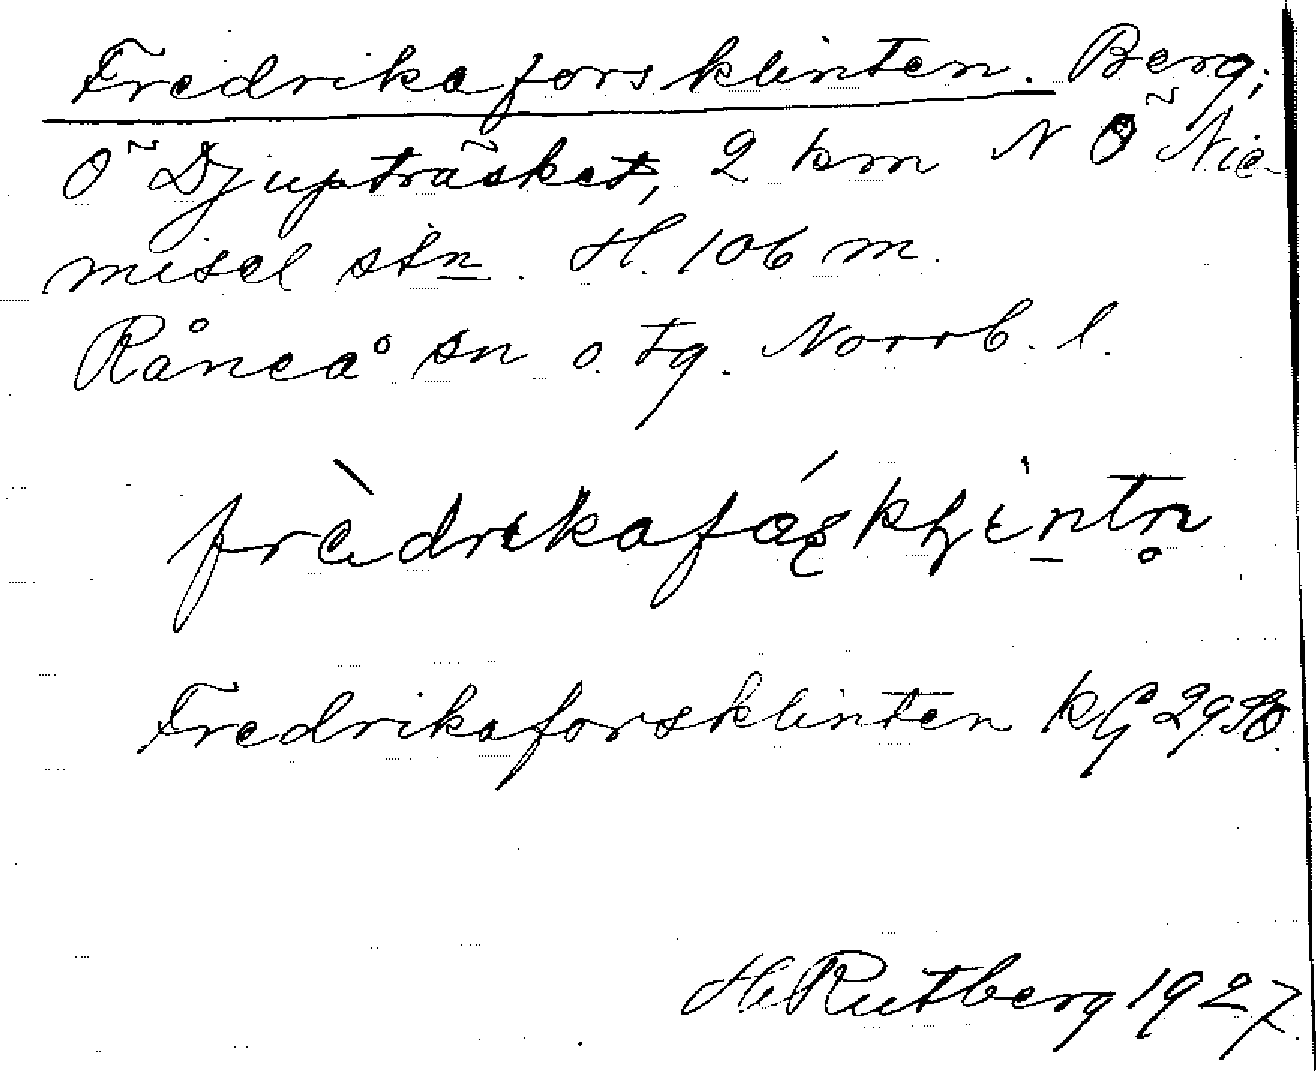 Fredrikaforsklinten. Berg,
Ö Djupträsket, 2 km N Ö Nie-
misel stn. H. 106 m.
Råneå sn o. tg. Norrb. l.
Fredrikaforsklinten
H. Rutberg 1927.